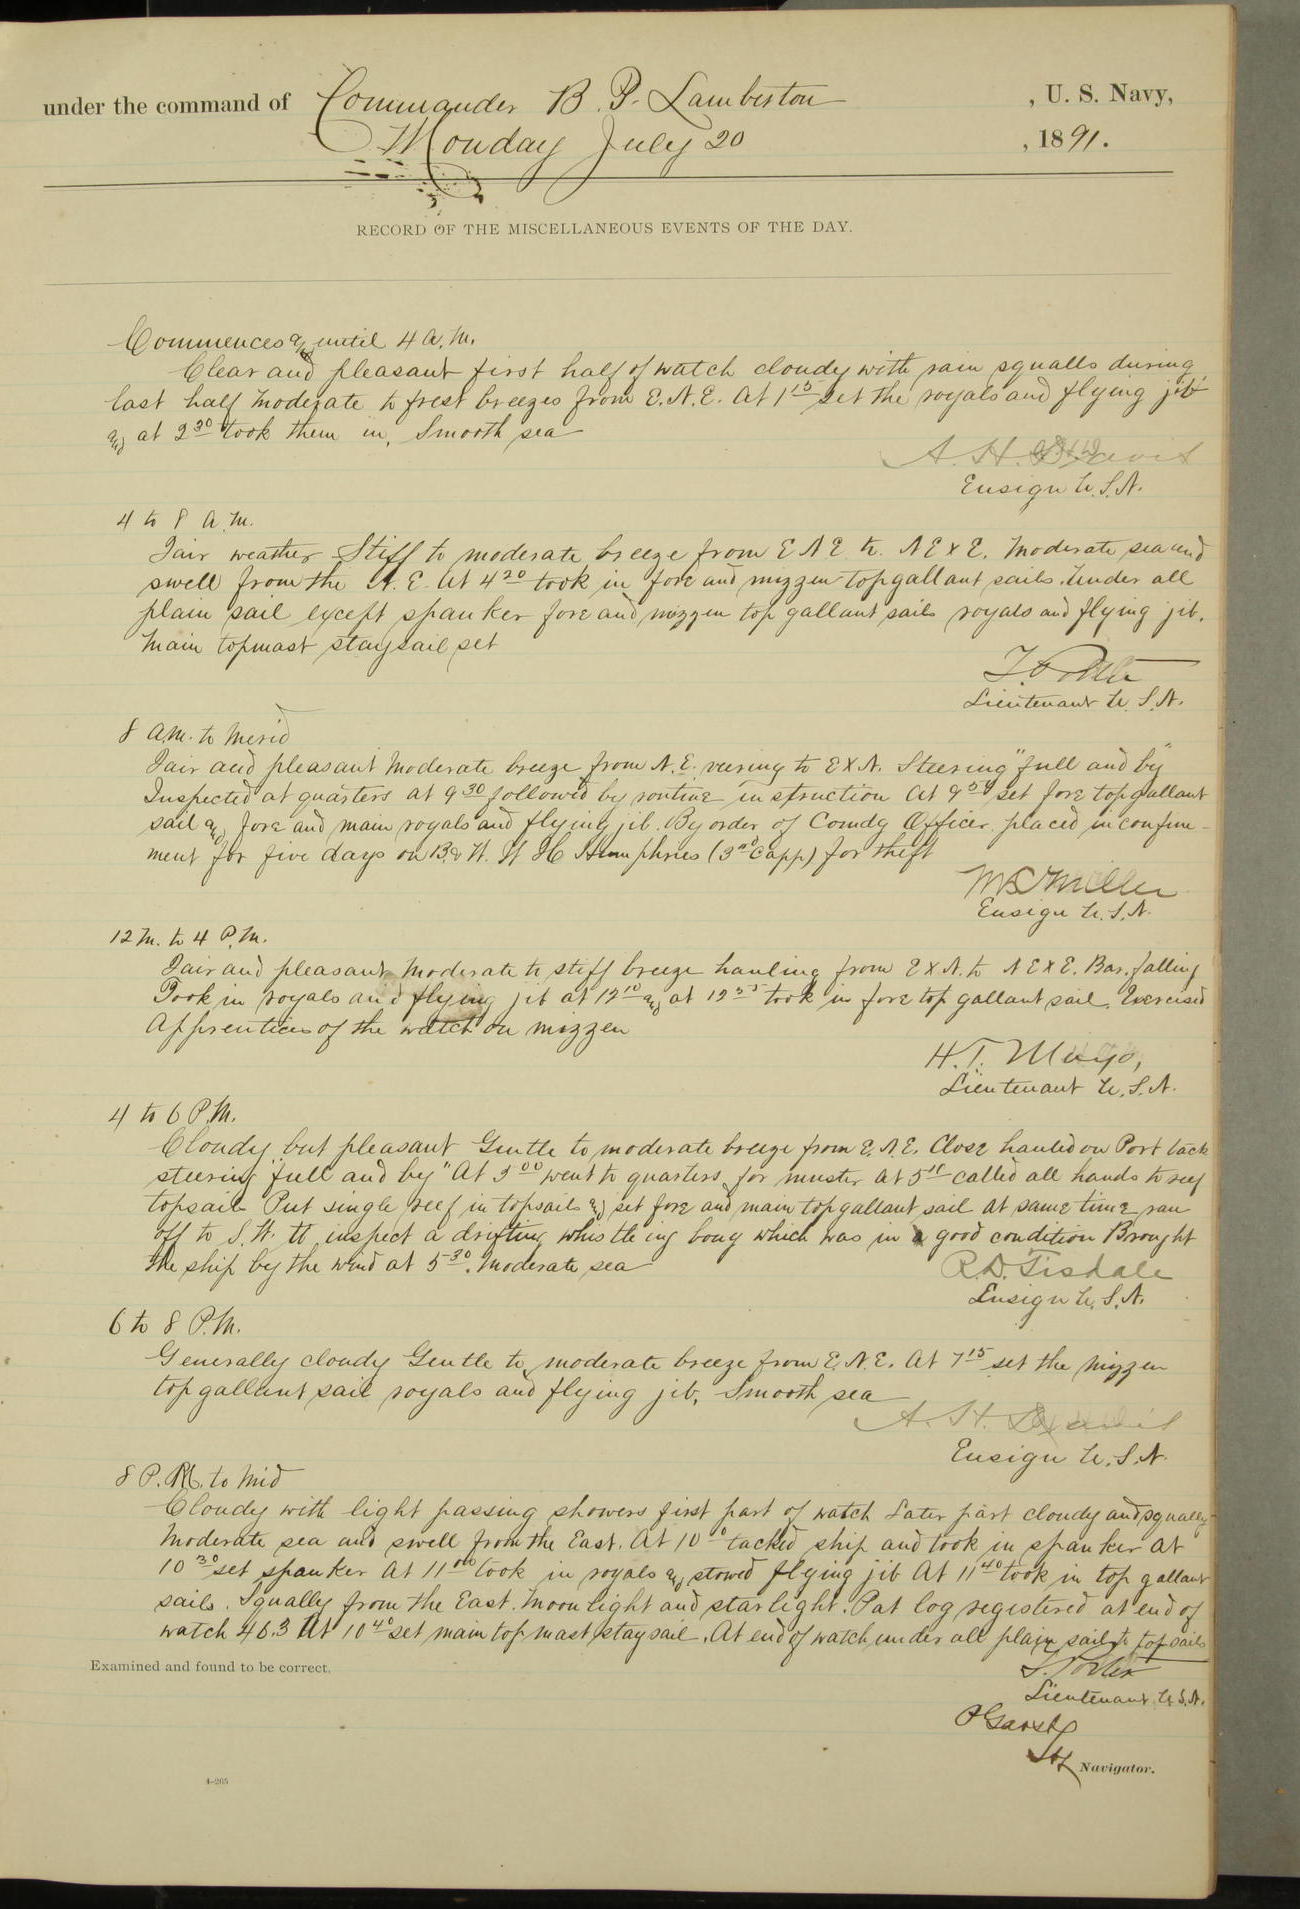 under the command of Commander B. P. Lamberton, U. S. Navy,
Monday July 20, 1891.
RECORD OF THE MISCELLANEOUS EVENTS OF THE DAY.
Commences and until 4 A.M.
Clear and pleasant first half of watch cloudy with rain squalls during
last half Moderate to fresh breezes from E.N.E. At 1 15 set the royals and flying jib
and at 2 30 took them in, Smooth sea
A. H. Davis
Ensign U.S.N.
4 to 8 A.M.
Fair weather Stiff to moderate breeze from ENE to NE x E. Moderate sea and
swell from the N.E. At 4 20 took in fore and mizzen topgallant sails. Under all
plain sail except spanker fore and mizzen top gallant sails royals and flying jib.
Main topmast staysail set
Lieutenant U.S.N.
8 A.M. to Merid
Fair and pleasant Moderate breeze from N.E. veering to E x N. Steering "full and by"
Inspected at quarters at 9 30 followed by routine instruction At 9 50 set fore topgallant
sail and fore and main royals and flying jib. By order of Comdg Officer placed in confine-
ment for five days on B & W. W H Humphries (3rd C app) for theft
Miller
Ensign U.S.N.
12 M. to 4 P.M.
Fair and pleasant Moderate to stiff breeze hauling from E x N. to NE x E. Bar. falling
Took in royals and flying jib at 12 10 and at 12 55 took in fore top gallant sail. Exercised
Apprentices of the watch on mizzen
H.T. Mayo,
Lieutenant U.S.N.
4 to 6 P.M.
Cloudy but pleasant Gentle to moderate breeze from E.N.E. Close hauled on Port tack
steering "full and by" At 5 00 went to quarters for muster At 5 11 called all hands to reef
topsails Put single reef in topsails and set fore and main topgallant sail at same time ran
off to S.W. to inspect a drifting whistleing bouy which was in a good condition Brought
the ship by the wind at 5 30. Moderate sea
R.D. Tisdale
Ensign U.S.N.
6 to 8 P.M.
Generally cloudy Gentle to moderate breeze from E.N.E. At 7 15 set the mizzen
top gallant sail royals and flying jib, Smooth sea
A. H. Davis
Ensign U.S.N.
8 P.M. to Mid
Cloudy with light passing showers first part of watch Later part cloudy and squally
Moderate sea and swell from the East. At 10 tacked ship and took in spanker At
10 30 set spanker At 11 00 took in royals and stowed flying jib At 11 40 took in top gallant
sails. Squally from the East. Moonlight and starlight. Pat log registered at end of
watch 46.3 At 10 40 set main top mast staysail. At end of watch under all plain sail to topsails
Examined and found to be correct.
Lieutenant U.S.N.
P Garst
Navigator.
4-205